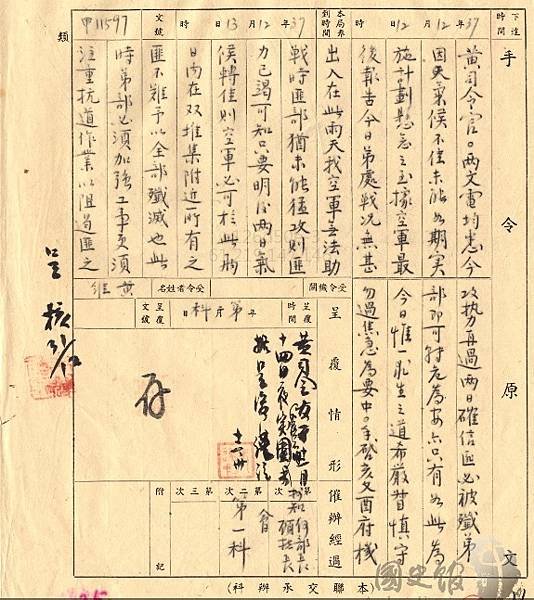 手令原文
下達時間
37年12月12日 時
本局奉到時間
37年12月13日 時
文號
甲11597
類
黃司令官。兩文電均悉今
因天氣候不佳未能如期實
施計劃懸念之至據空軍最
後報告今日弟處戰況無甚
出入在此兩天我空軍無法助
戰時匪部猶未能猛攻則匪
力已竭可知只要明後兩日氣
候轉佳則空軍必可於此期
日內在双堆集附近所有之
匪不難予以全部殲滅也此
時弟部必須加強工事更須
注重抗道作業以阻遏匪之
攻勢再過兩日確信匪必被殲弟
部即可 為安 只有如此為
今日惟一求生之道希嚴督慎守
勿過焦急為要中。手啓亥文酉府機
受令機關
受令者姓名
黃維
呈覆時間
年 月 日 時
呈覆文號
第 科
呈覆情形
黃司令
十四日夜突圍
存
催辦經過
第一次
第二次
第三次
抄知何部長
顧總長
第一科
附記
(本聯交承辦科)
國史館